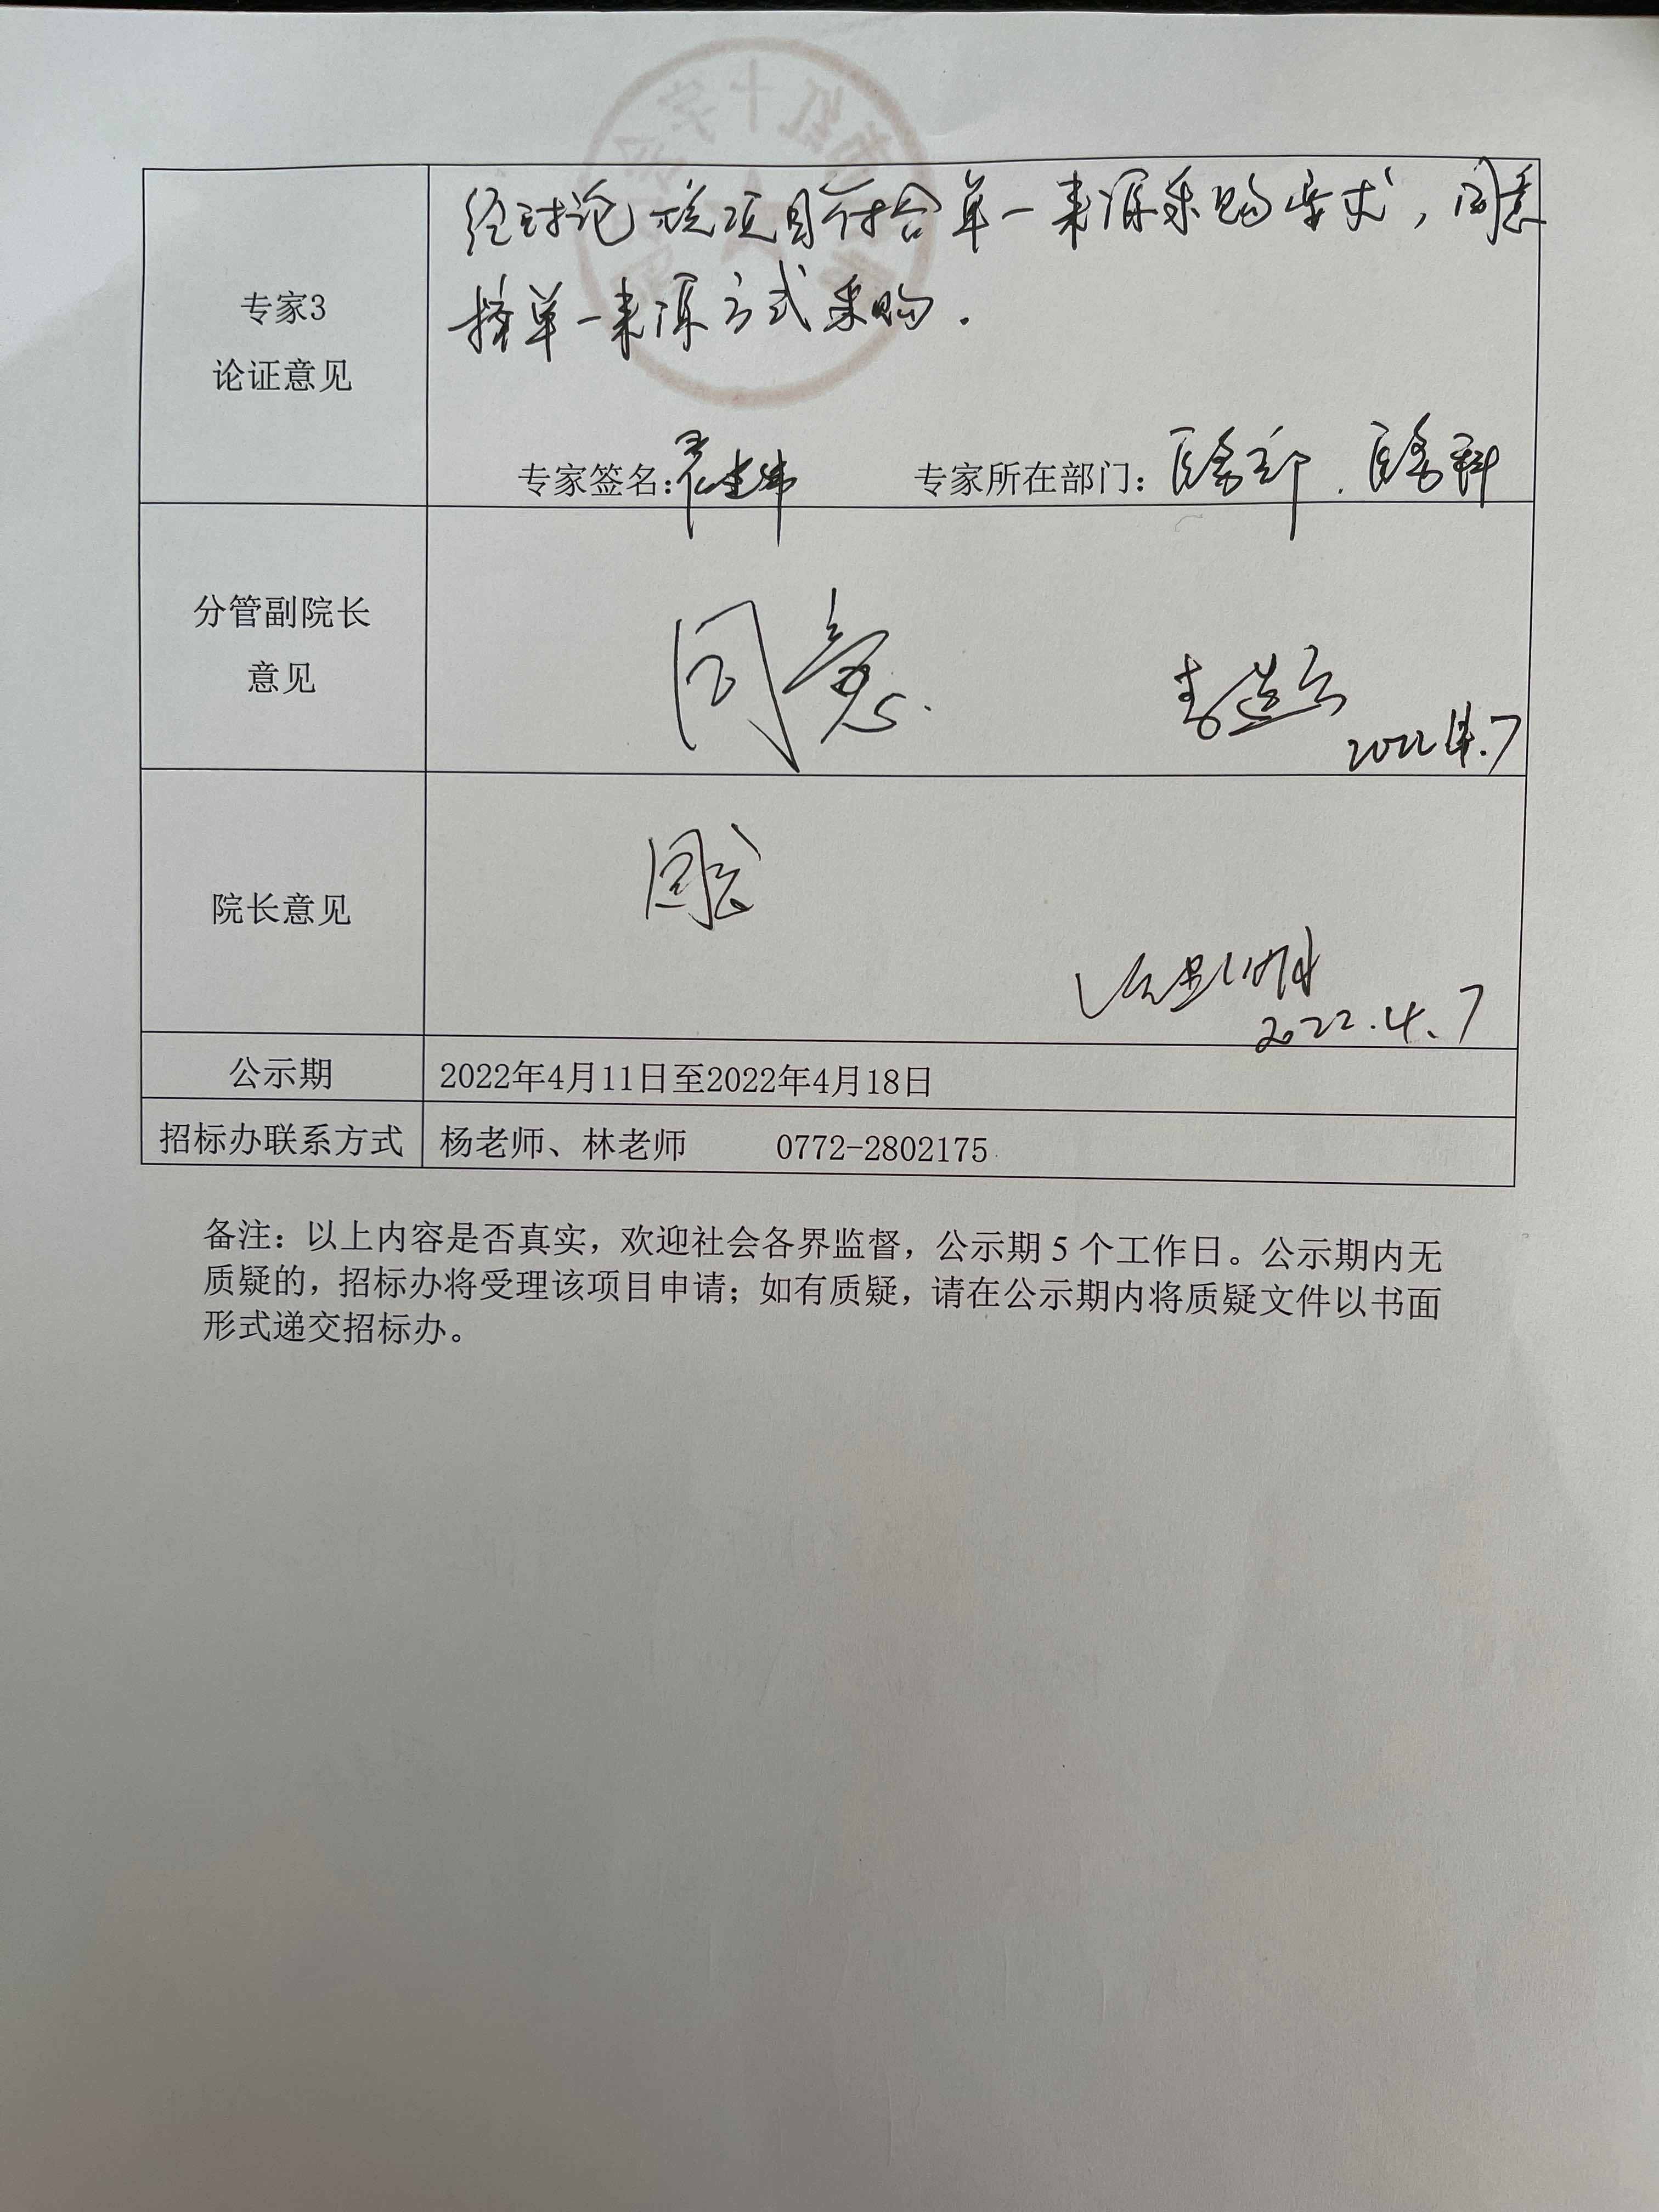 经讨论该项目符合单一来源采购要求，同意
按单一来源方式采购.
专家3
论证意见
专家签名: 专家所在部门: 医务部. 医务科
分管副院长
意见
同意.
2022.4.7
院长意见
同意
2022.4.7
公示期 2022年4月11日至2022年4月18日
招标办联系方式 杨老师、林老师 0772-2802175
备注：以上内容是否真实，欢迎社会各界监督，公示期 5 个工作日。公示期内无
质疑的，招标办将受理该项目申请；如有质疑，请在公示期内将质疑文件以书面
形式递交招标办。